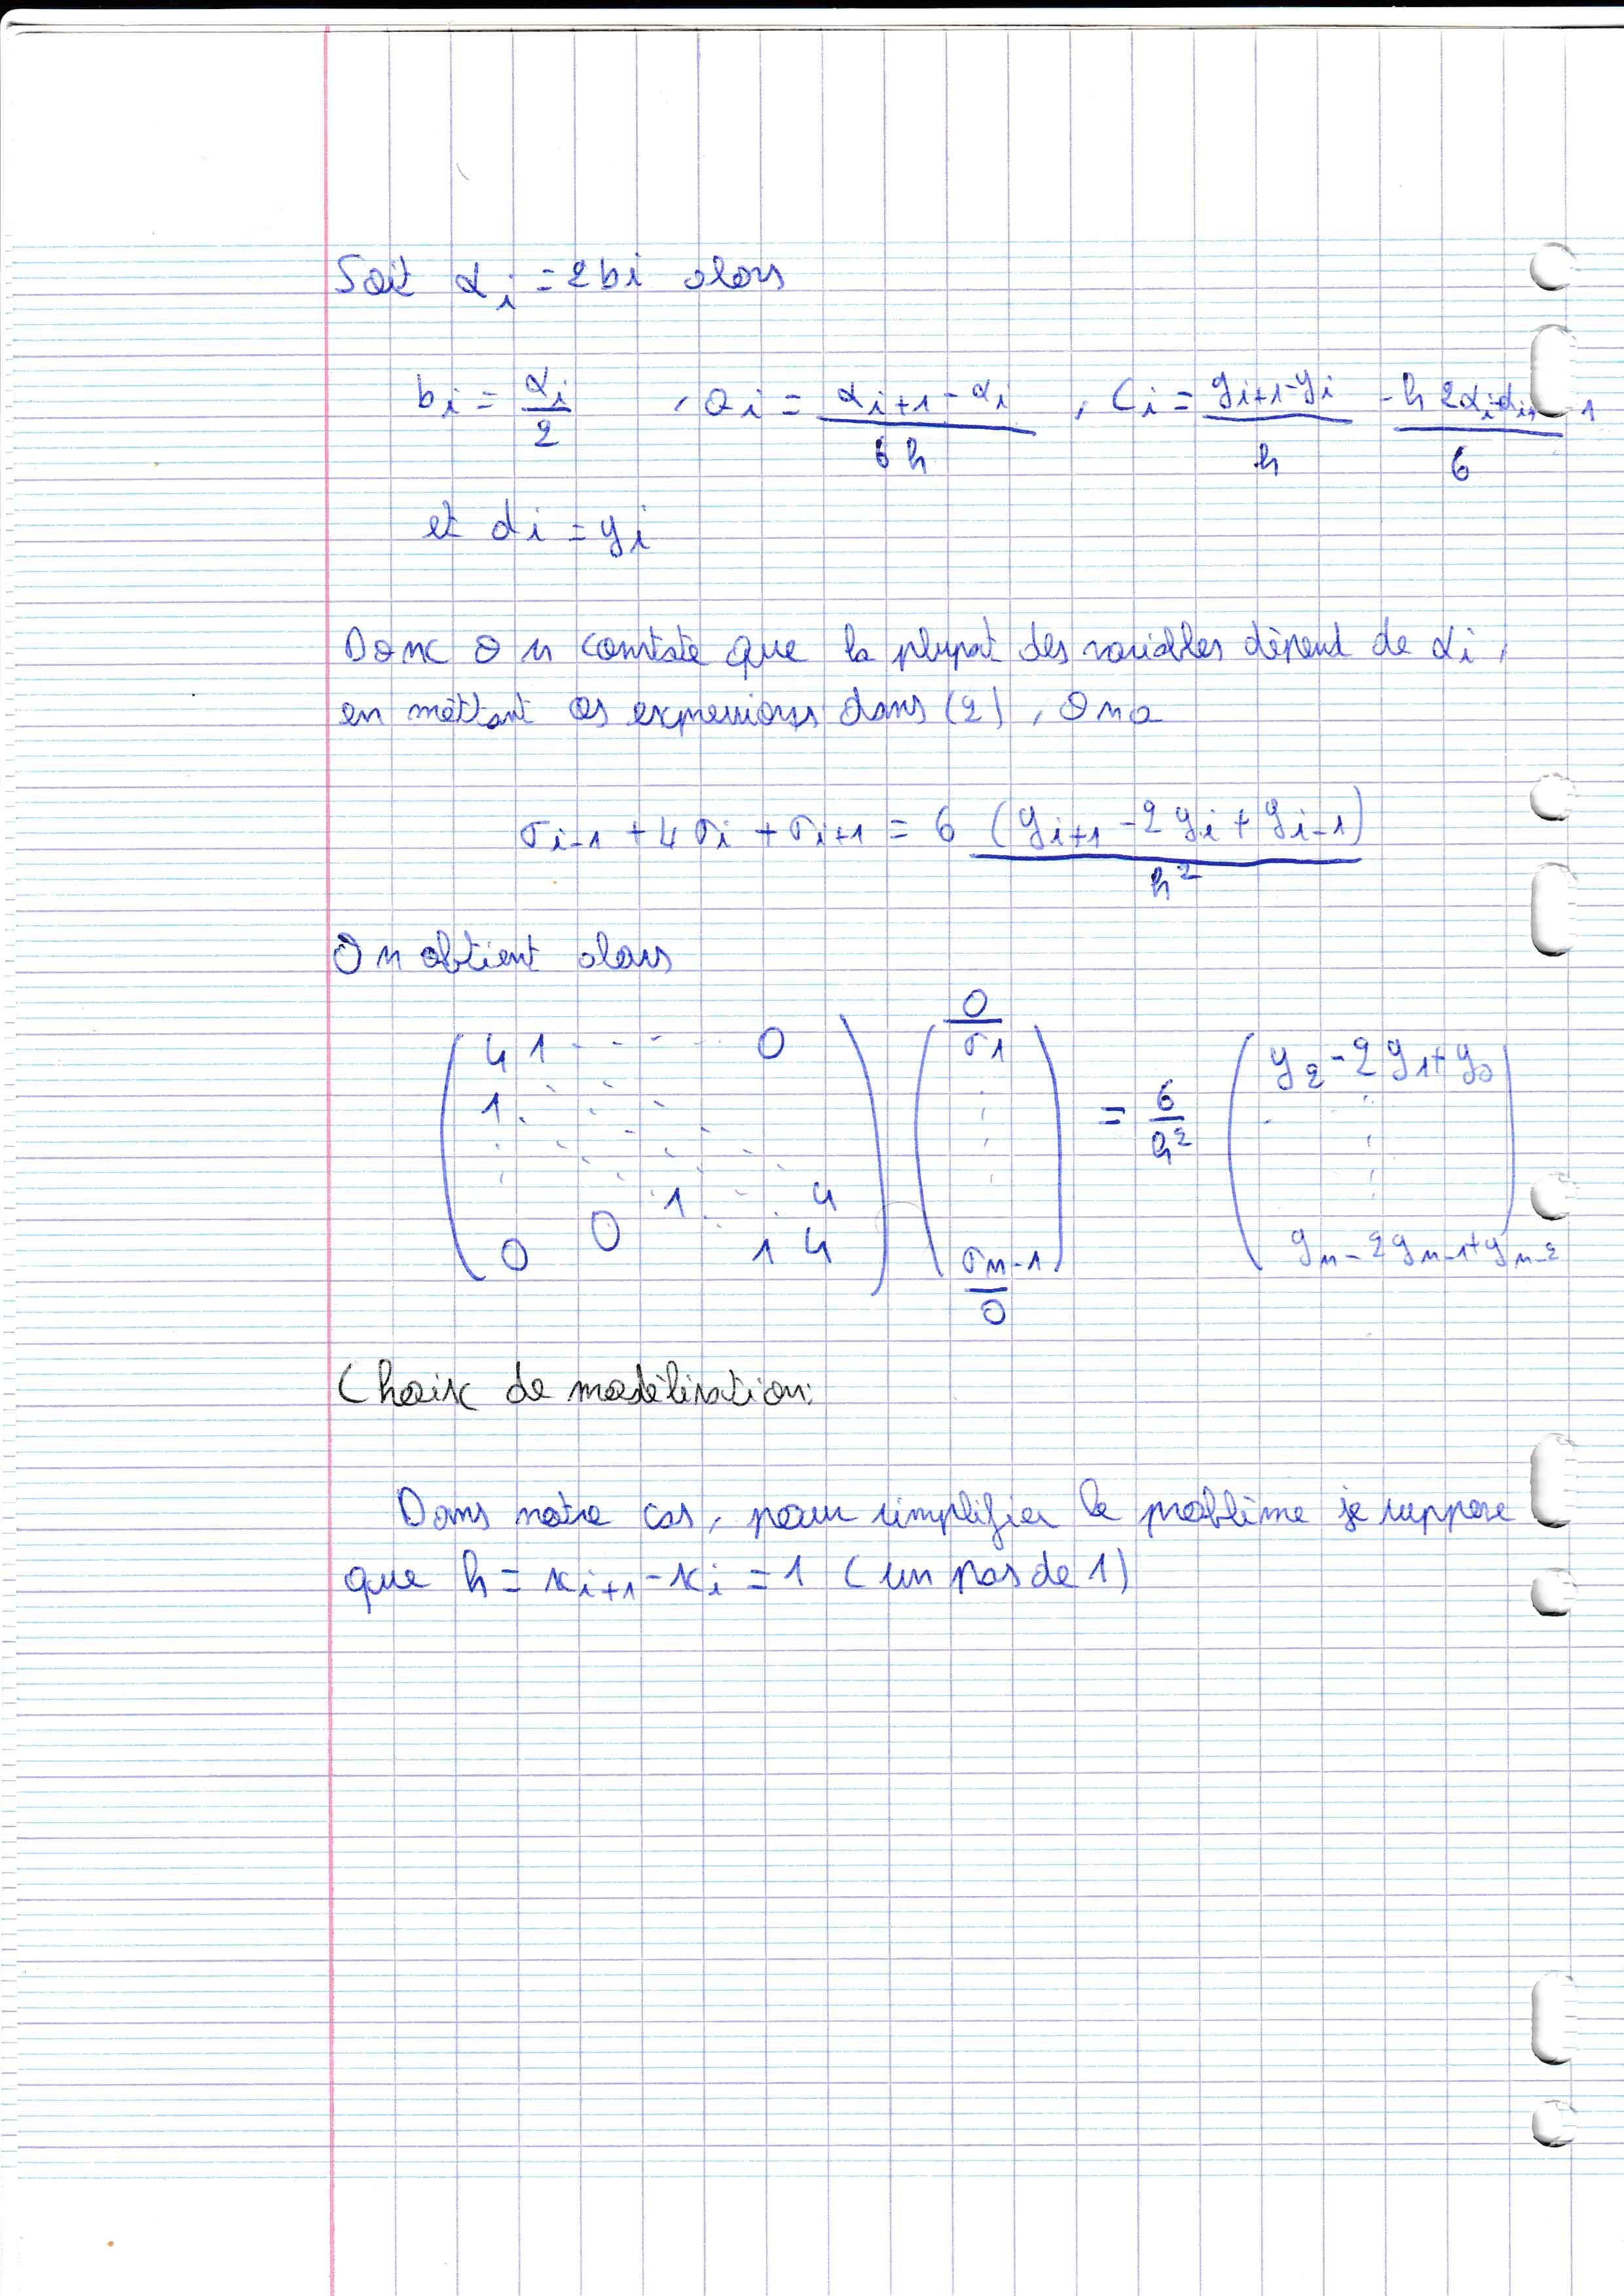 Soit αi = 2bi alors
bi = αi/2 , ai = (αi+1 - αi)/6h , Ci = (yi+1 - yi)/h - h 2αi αi+1/6
et di = yi
Donc on constate que la plupart des variables dépend de αi,
en mettant ces expressions dans (2), on a
σi-1 + 4σi + σi+1 = 6 (yi+1 - 2yi + yi-1)/h²
On obtient alors
( 4 1 . . . 0 ) 0 ( σ1 ) = 6/h² ( y2 - 2y1 + y0 )
1 . . .
1 . . 4
0 0 1 4 σn-1 0 yn - 2yn-1 + yn-2
Choix de modélisation:
Dans notre cas, pour simplifier le problème je suppose
que h = xi+1 - xi = 1 (un pas de 1)